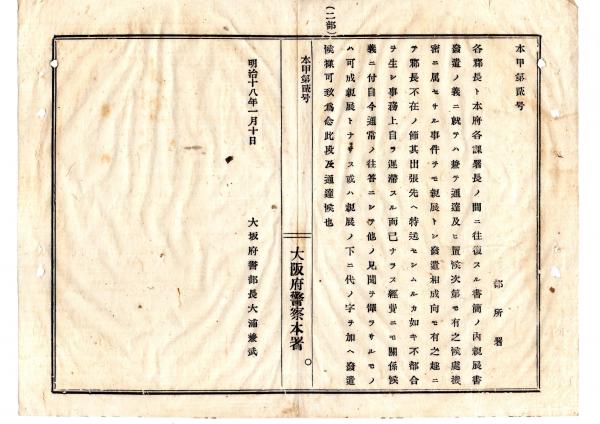 (二部)
本甲第貳号
部所署
各郡長ト本府各課署長ノ間ニ往復スル書簡ノ内親展書
發遣ノ義ニ就テハ兼テ通達及ヒ置候次第モ有之候處機
密ニ属セサル事件ヲモ親展トシ發遣相成向モ有之趣ニ
テ郡長不在ノ節其出張先ヘ特送セシムルカ如キ不都合
ヲ生シ事務上自ラ遅滞スル而已ナラス經費ニモ關係候
義ニ付自今通常ノ往答ニシテ他ノ見聞ヲ憚ラサルモノ
ハ可成親展トナサス或ハ親展ノ下ニ代ノ字ヲ加ヘ發遣
候様可致為念此段及通達候也
大阪府警察本署
本甲第貳号
明治十八年一月十日
大坂府警部長大浦兼武